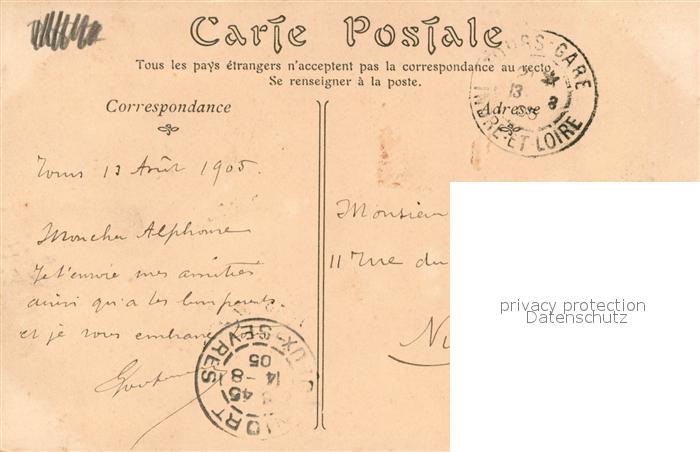 Carte Postale
Tous les pays étrangers n'acceptent pas la correspondance au recto.
Se renseigner à la poste.
Correspondance
Adresse
TOURS-GARE
13 8
05
INDRE-ET-LOIRE
Tours 13 Août 1905.
Mon cher Alphonse
Je t'envoie mes amitiés
ainsi qu'a tes
et je vous embrasse
Monsieur
11 Rue du
NIORT
45
14 -8
05
SEVRES
privacy protection
Datenschutz